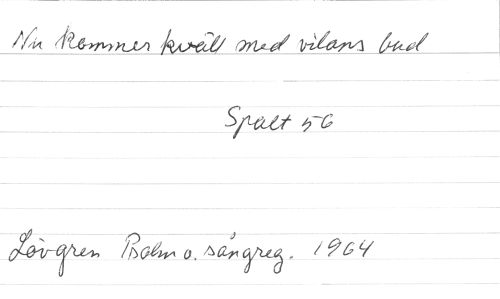 Nu kommer kväll med vilans bud
Spalt 56
Lövgren Psalm o. sångreg. 1964